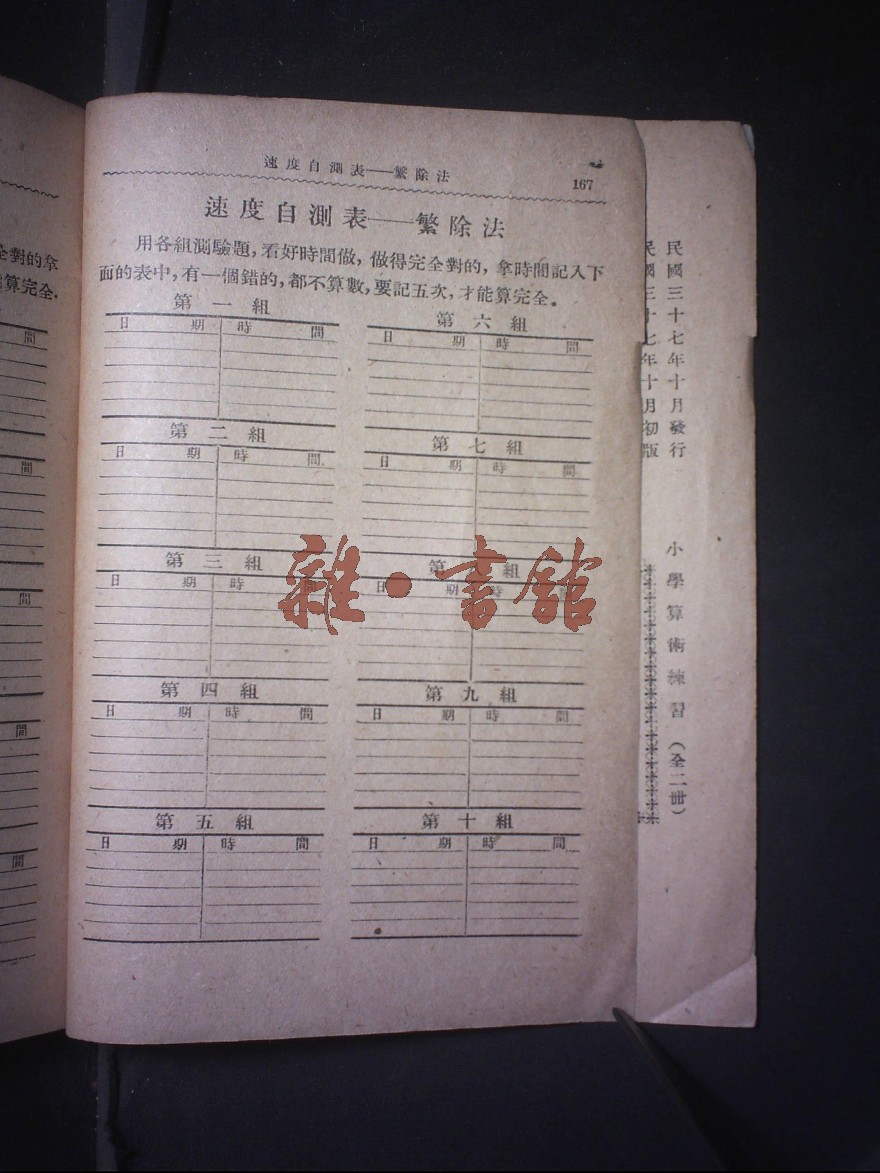 速度自測表——繁除法
167
速度自測表——繁除法
用各組測驗題,看好時間做,做得完全對的,拿時間記入下
面的表中,有一個錯的,都不算數,要記五次,才能算完全。
第一組
日期 時間
第二組
日期 時間
第三組
日期 時
第四組
日期 時間
第五組
日期 時間
第六組
日期 時間
第七組
日期 時間
第 組
日期 時間
第九組
日期 時間
第十組
日期 時間
雜·書館
全對的拿
算完全.
間
間
間
間
間
民國三十七年十月發行
民國三十七年十月初版
小學算術練習(全二冊)